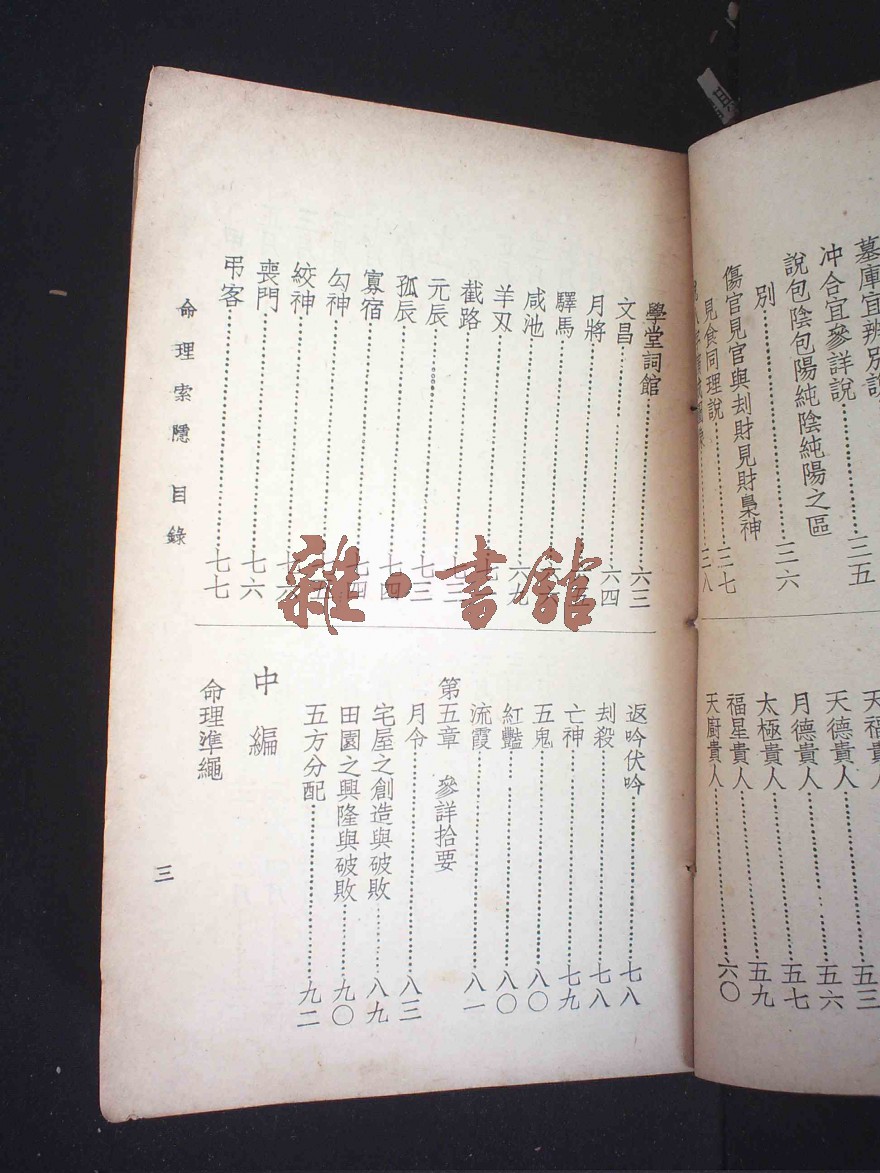 墓庫宜辨別說
冲合宜參詳說……三五
說包陰包陽純陰純陽之區
別……三六
傷官見官與刦財見財梟神
見食同理說……三七
三八
天福貴人……五三
天德貴人……五六
月德貴人……五七
太極貴人……五九
福星貴人……六〇
天廚貴人
學堂詞館……六三
文昌……六四
月將……五
驛馬……
咸池……六九
羊刃……
截路……七
元辰……七三
孤辰……七四
寡宿……七四
勾神……七五
絞神……七六
喪門……七六
弔客……七七
返吟伏吟……七八
刦殺……七八
亡神……七九
五鬼……八〇
紅豔……八〇
流霞……八一
第五章 參詳拾要
月令……八三
宅屋之創造與破敗……八九
田園之興隆與破敗……九〇
五方分配……九二
中編
命理準繩
命理索隱 目錄
三
雜·書館